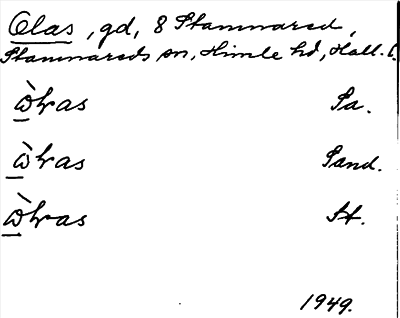 Olas, gd, 8 Stamnared,
Stamnareds sn, Himle hd, Hall. l.
ὼlras Sa.
ὼlras Sand.
ὼlras St.
1949.